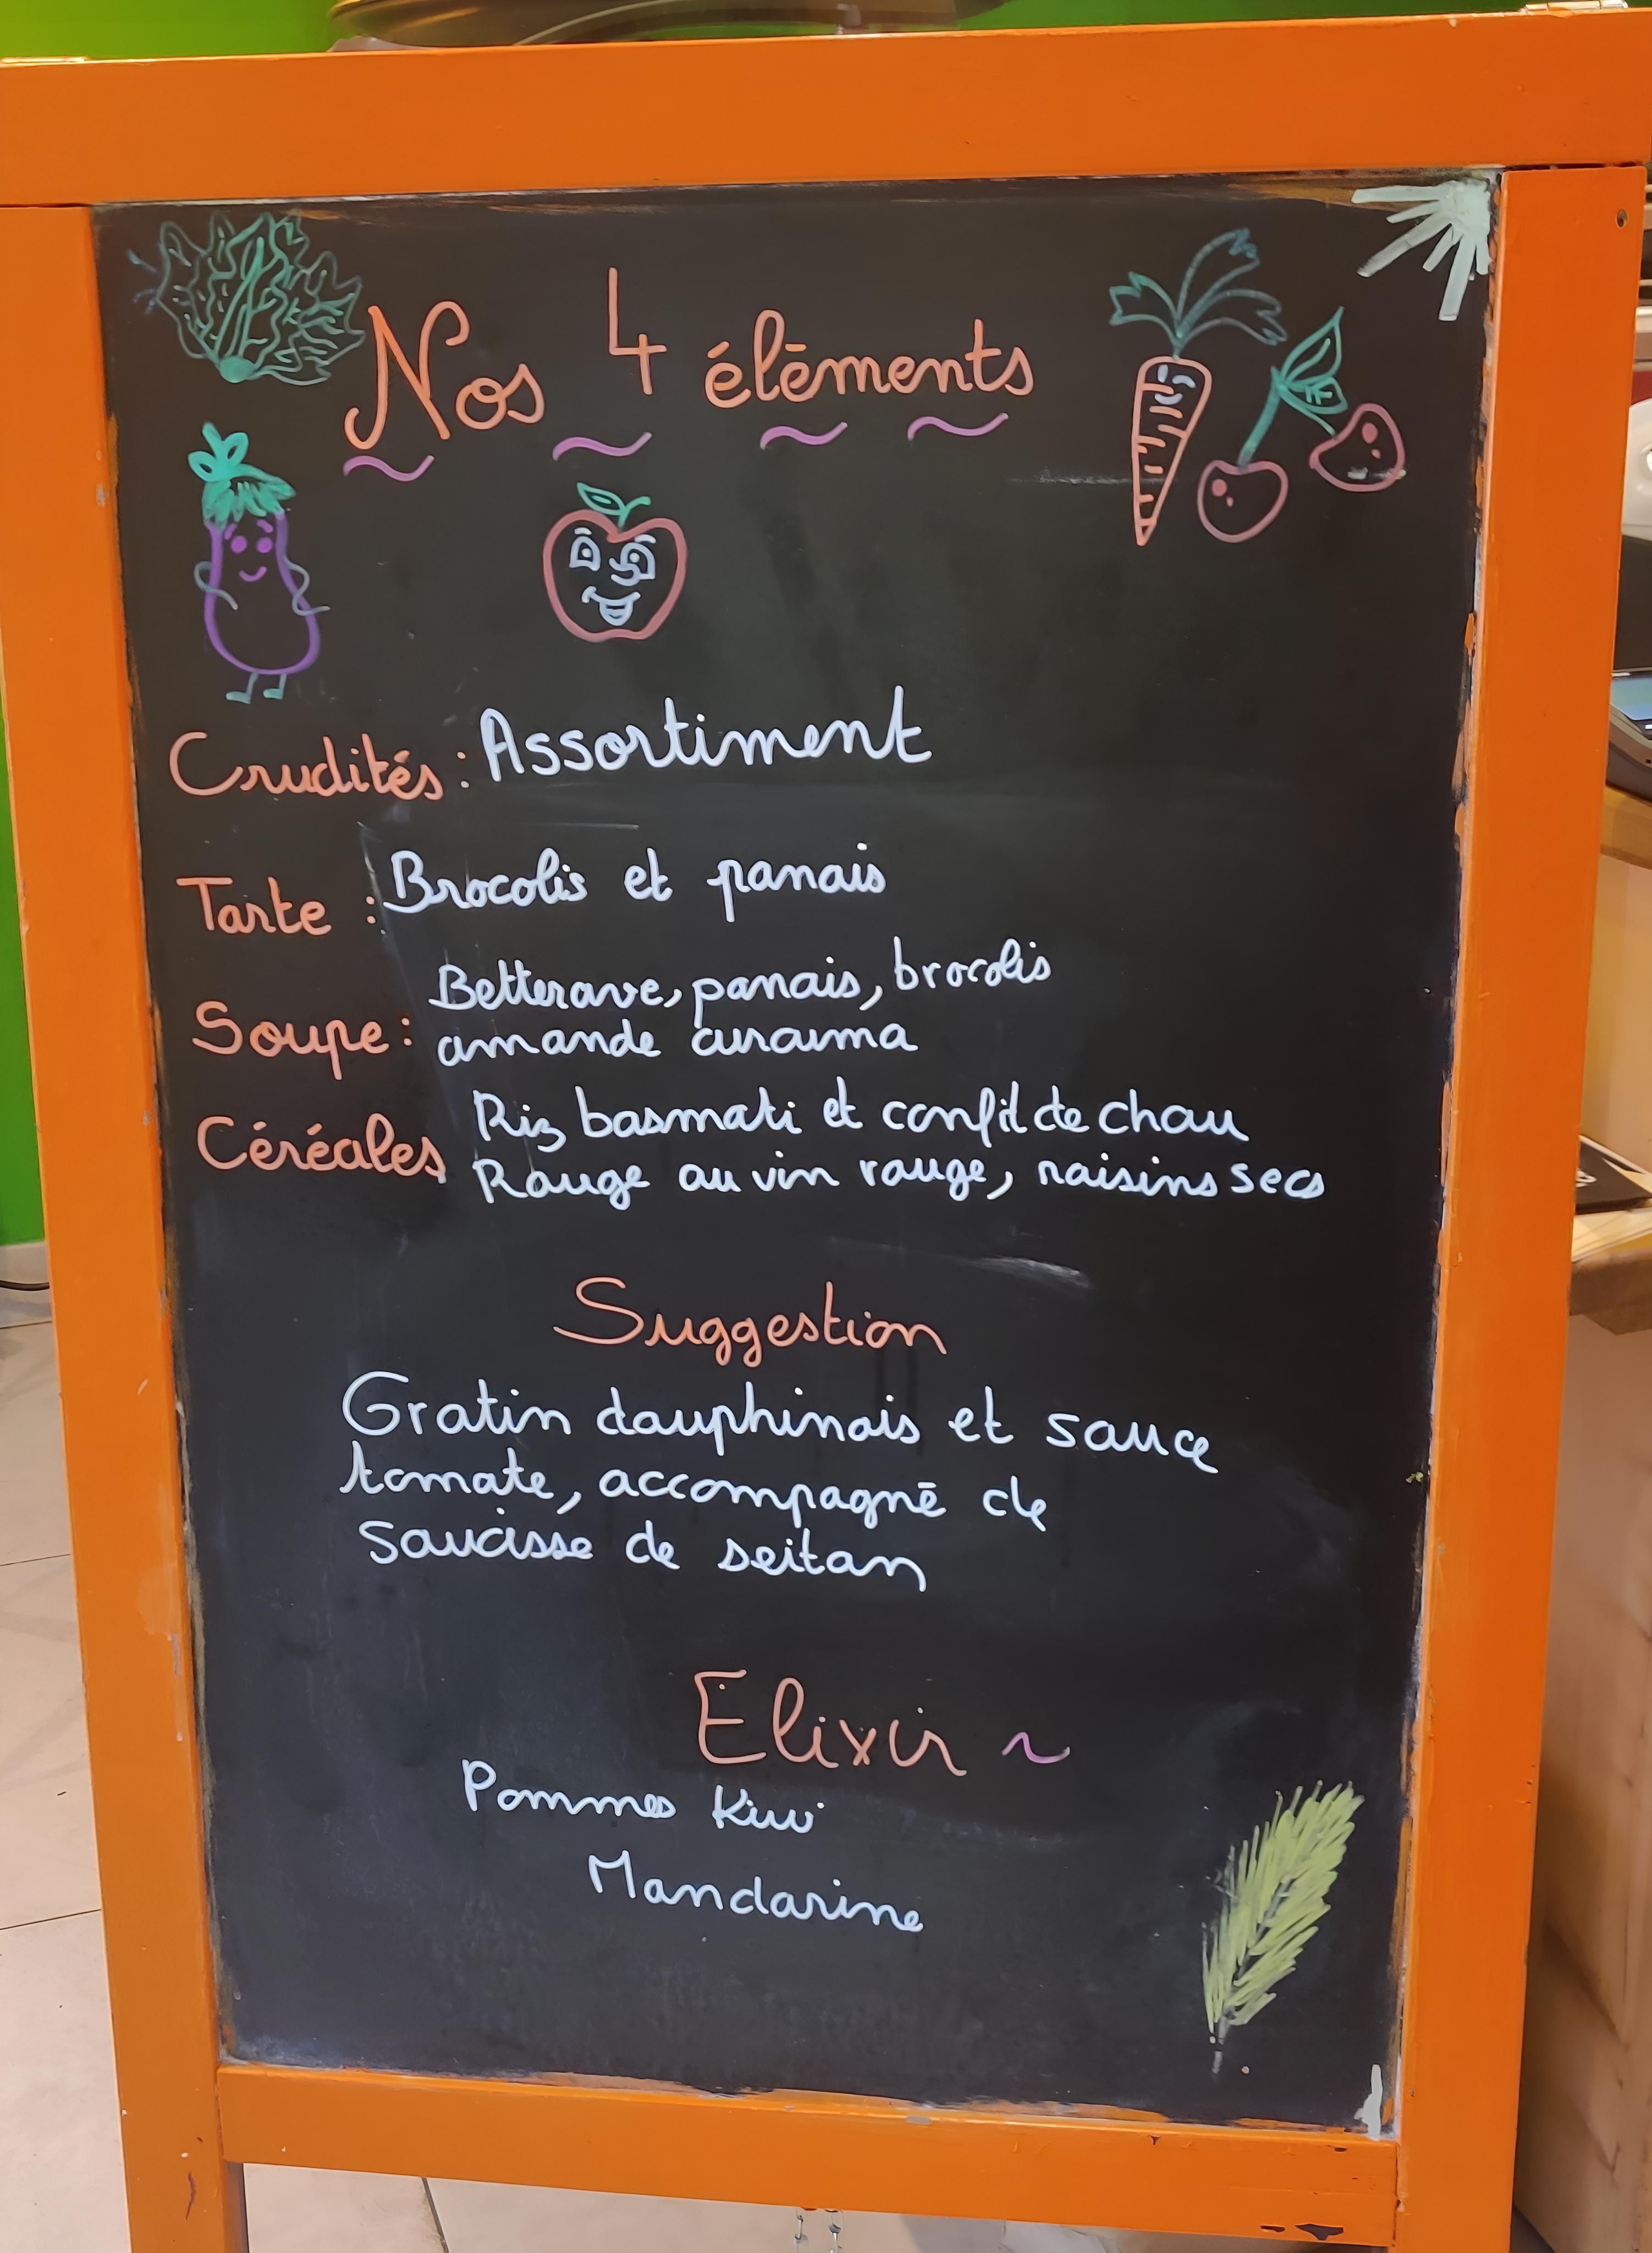 Nos 4 éléments
Crudités : Assortiment
Tarte : Brocolis et panais
Soupe : Betterave, panais, brocolis
amande curcuma
Céréales Riz basmati et confit de chou
Rouge au vin rouge, raisins secs
Suggestion
Gratin dauphinois et sauce
tomate, accompagné de
saucisse de seitan
Elixir ~
Pommes Kiwi
Mandarine